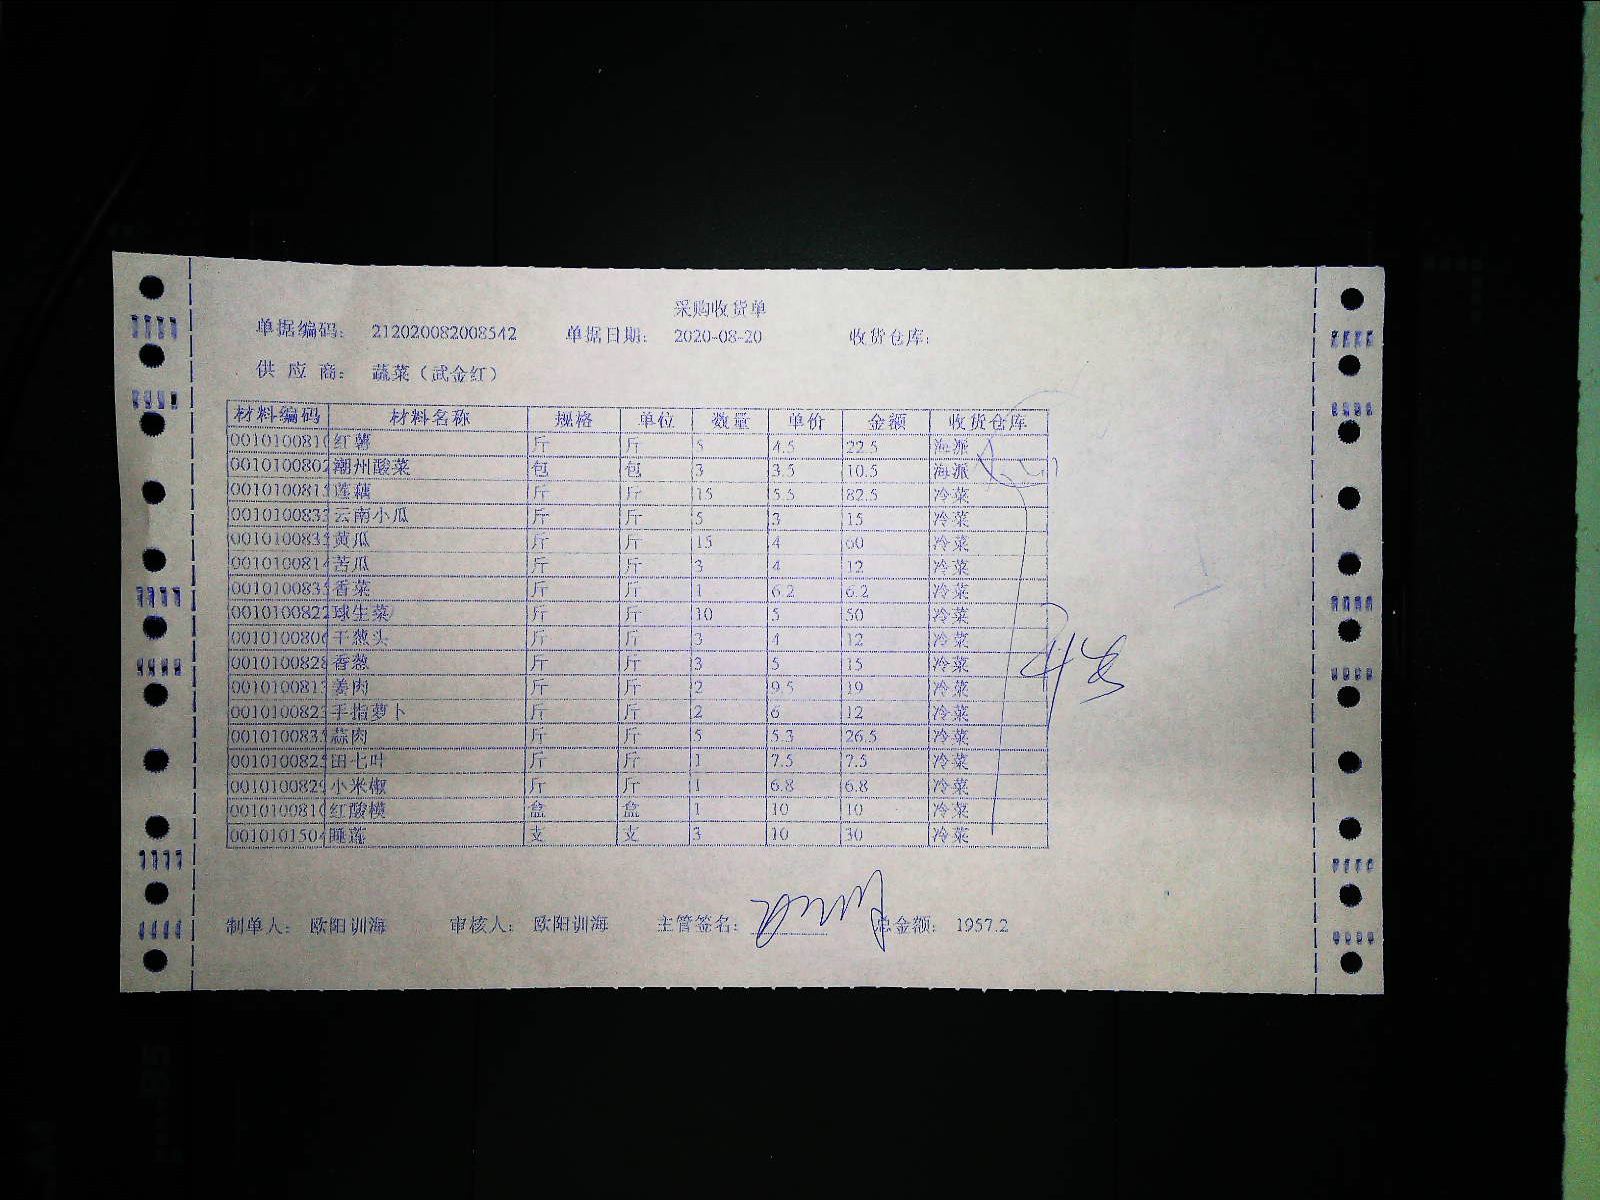 采购收货单
单据编码： 212020082008542 单据日期： 2020-08-20 收货仓库：
供 应 商： 蔬菜（武金红）
材料编码 材料名称 规格 单位 数量 单价 金额 收货仓库
0010100810 红薯 斤 斤 5 4.5 22.5 海派
0010100802 潮州酸菜 包 包 3 3.5 10.5 海派
001010081 莲藕 斤 斤 15 5.5 82.5 冷菜
001010083 云南小瓜 斤 斤 5 3 15 冷菜
001010083 黄瓜 斤 斤 15 4 60 冷菜
001010081 苦瓜 斤 斤 3 4 12 冷菜
001010083 香菜 斤 斤 1 6.2 6.2 冷菜
0010100822 球生菜 斤 斤 10 5 50 冷菜
001010080 干葱头 斤 斤 3 4 12 冷菜
0010100828 香葱 斤 斤 3 5 15 冷菜
001010081 姜肉 斤 斤 2 9.5 19 冷菜
001010082 手指萝卜 斤 斤 2 6 12 冷菜
001010083 蒜肉 斤 斤 5 5.3 26.5 冷菜
001010082 田七叶 斤 斤 1 7.5 7.5 冷菜
001010082 小米椒 斤 斤 1 6.8 6.8 冷菜
001010081 红酸模 盒 盒 1 10 10 冷菜
001010150 睡莲 支 支 3 10 30 冷菜
制单人： 欧阳训海 审核人： 欧阳训海 主管签名： 总金额： 1957.2